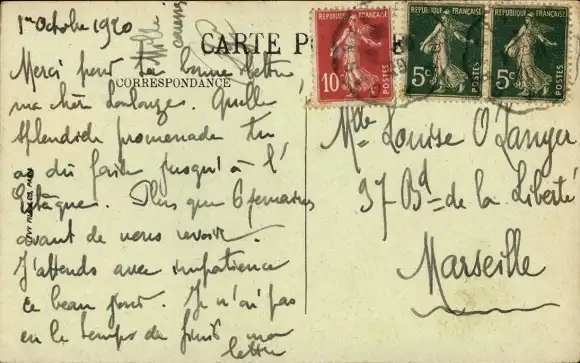 1er Octobre 1920
CARTE
CORRESPONDANCE
Merci pour ta bonne lettre,
ma chère Loulonge. Quelle
splendide promenade tu
as dû faire jusqu'à l'
Estaque. Plus que 6 semaines
avant de nous revoir.
J'attends avec impatience
ce beau jour. Je n'ai pas
eu le temps de finir ma
lettre
REPUBLIQUE FRANÇAISE
10c
POSTES
REPUBLIQUE FRANÇAISE
5c
POSTES
REPUBLIQUE FRANÇAISE
5c
POSTES
Mlle Louise
37 Bd de la Liberté
Marseille